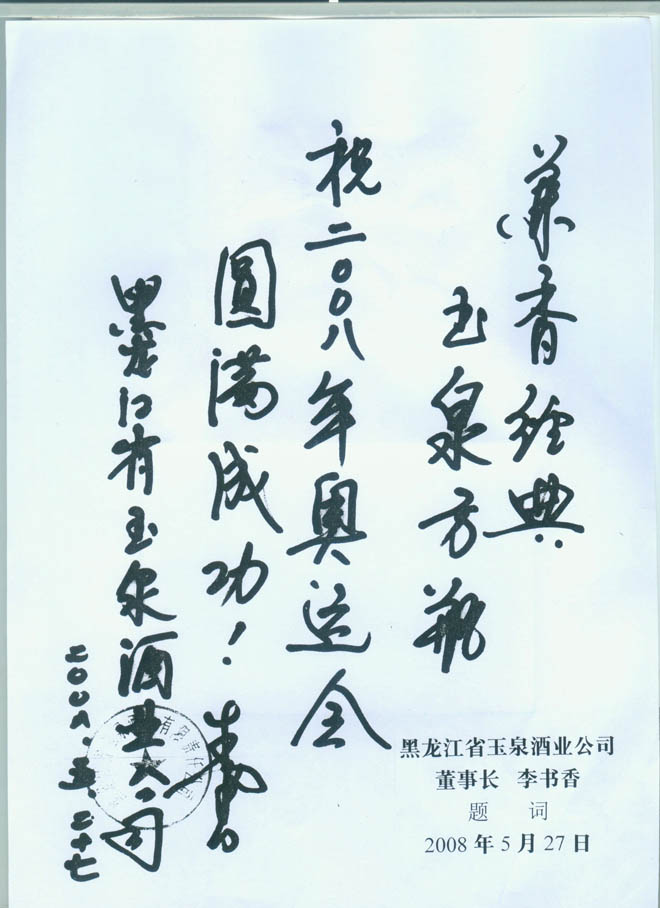 兼香经典
玉泉方瓶
祝二〇〇八年奥运会
圓满成功！
李书香
黑龙江省玉泉酒业公司
二〇〇八、五、二十七
黑龙江省玉泉酒业公司
董事长 李书香
题 词
2008 年 5 月 27 日